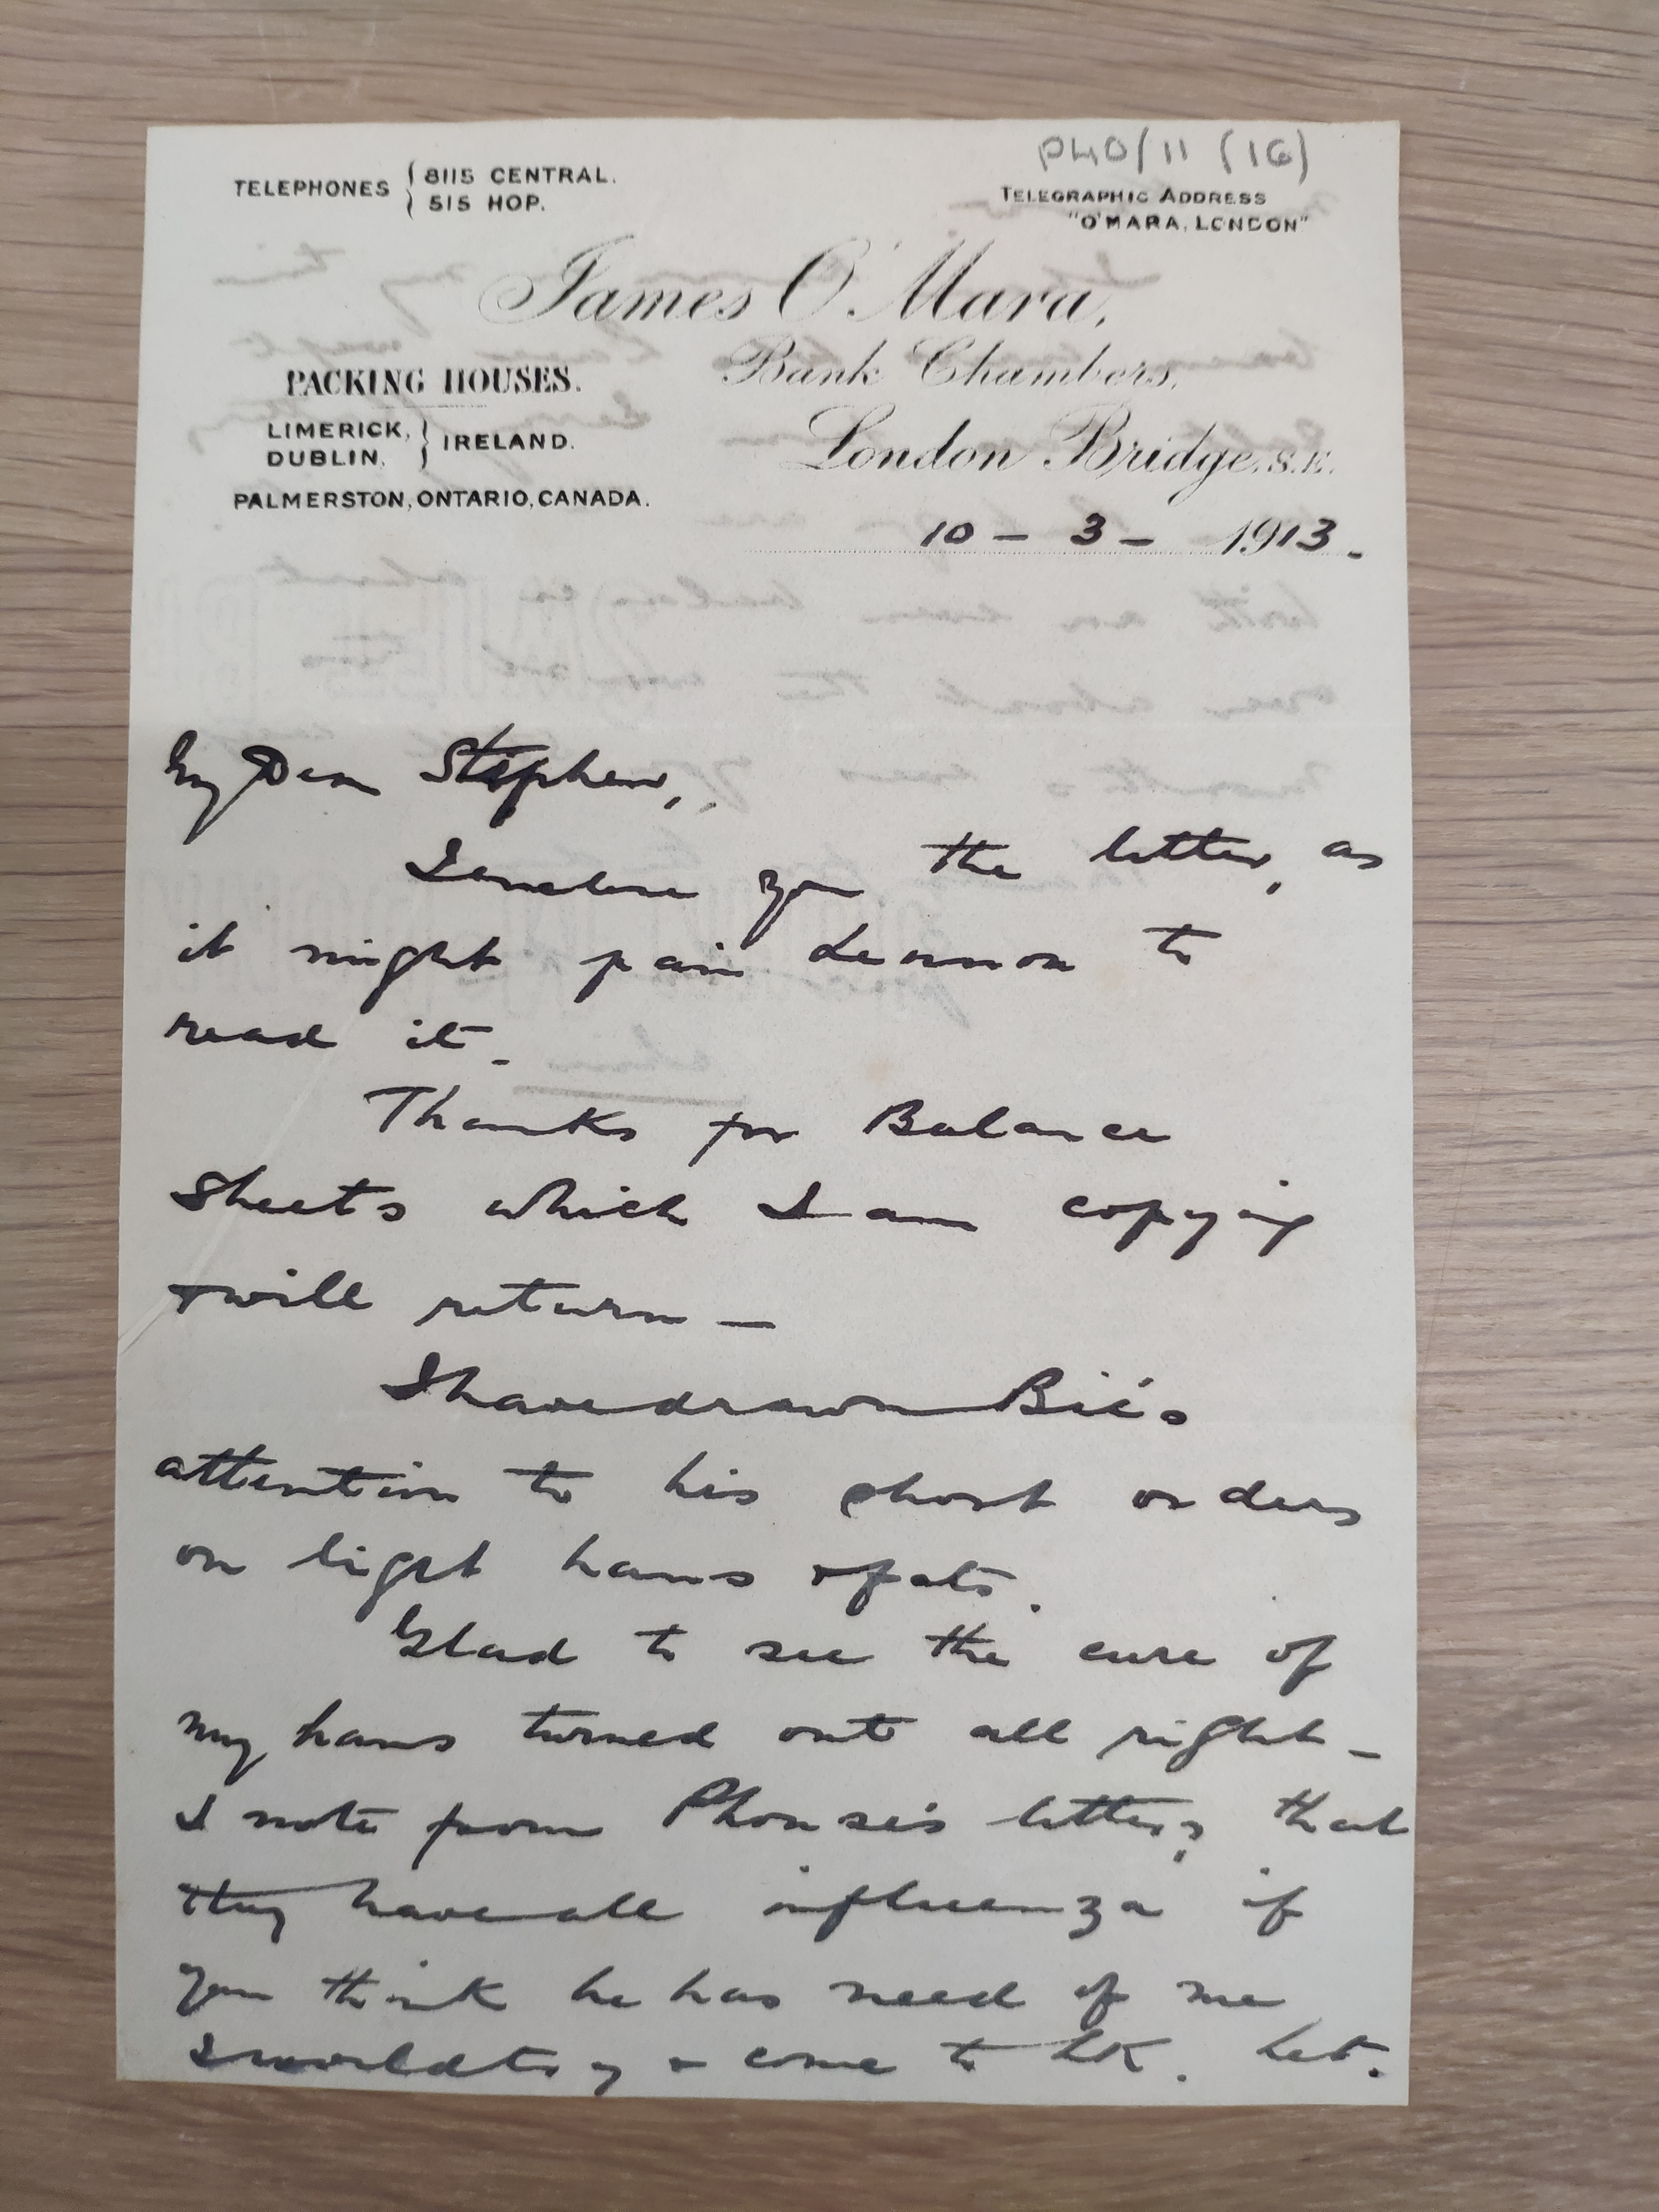 P40/11 (16)
TELEPHONES { 8115 CENTRAL.
515 HOP.
TELEGRAPHIC ADDRESS
"O'MARA, LONDON"
James O'Mara,
PACKING HOUSES.
Bank Chambers,
LIMERICK, } IRELAND.
DUBLIN.
London Bridge, S.E.
PALMERSTON, ONTARIO, CANADA.
10 - 3 - 1913.
My Dear Stephen,
I enclose you the letter, as
it might pain Lennon to
read it.
Thanks for Balance
Sheets which I am copying
& will return —
I have drawn
attention to his short orders
on light hams
Glad to see the cure of
my hams turned out all right —
I note from Phonse's letter, that
they have all influenza if
you think he has need of me
I would try & come to LK. Let.